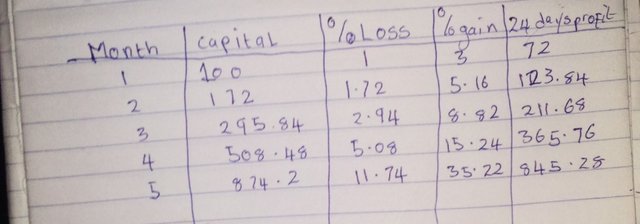 Month capital %Loss %gain 24 days profit
1 100 1 3 72
2 172 1.72 5.16 123.84
3 295.84 2.94 8.82 211.68
4 508.48 5.08 15.24 365.76
5 874.2 11.74 35.22 845.28